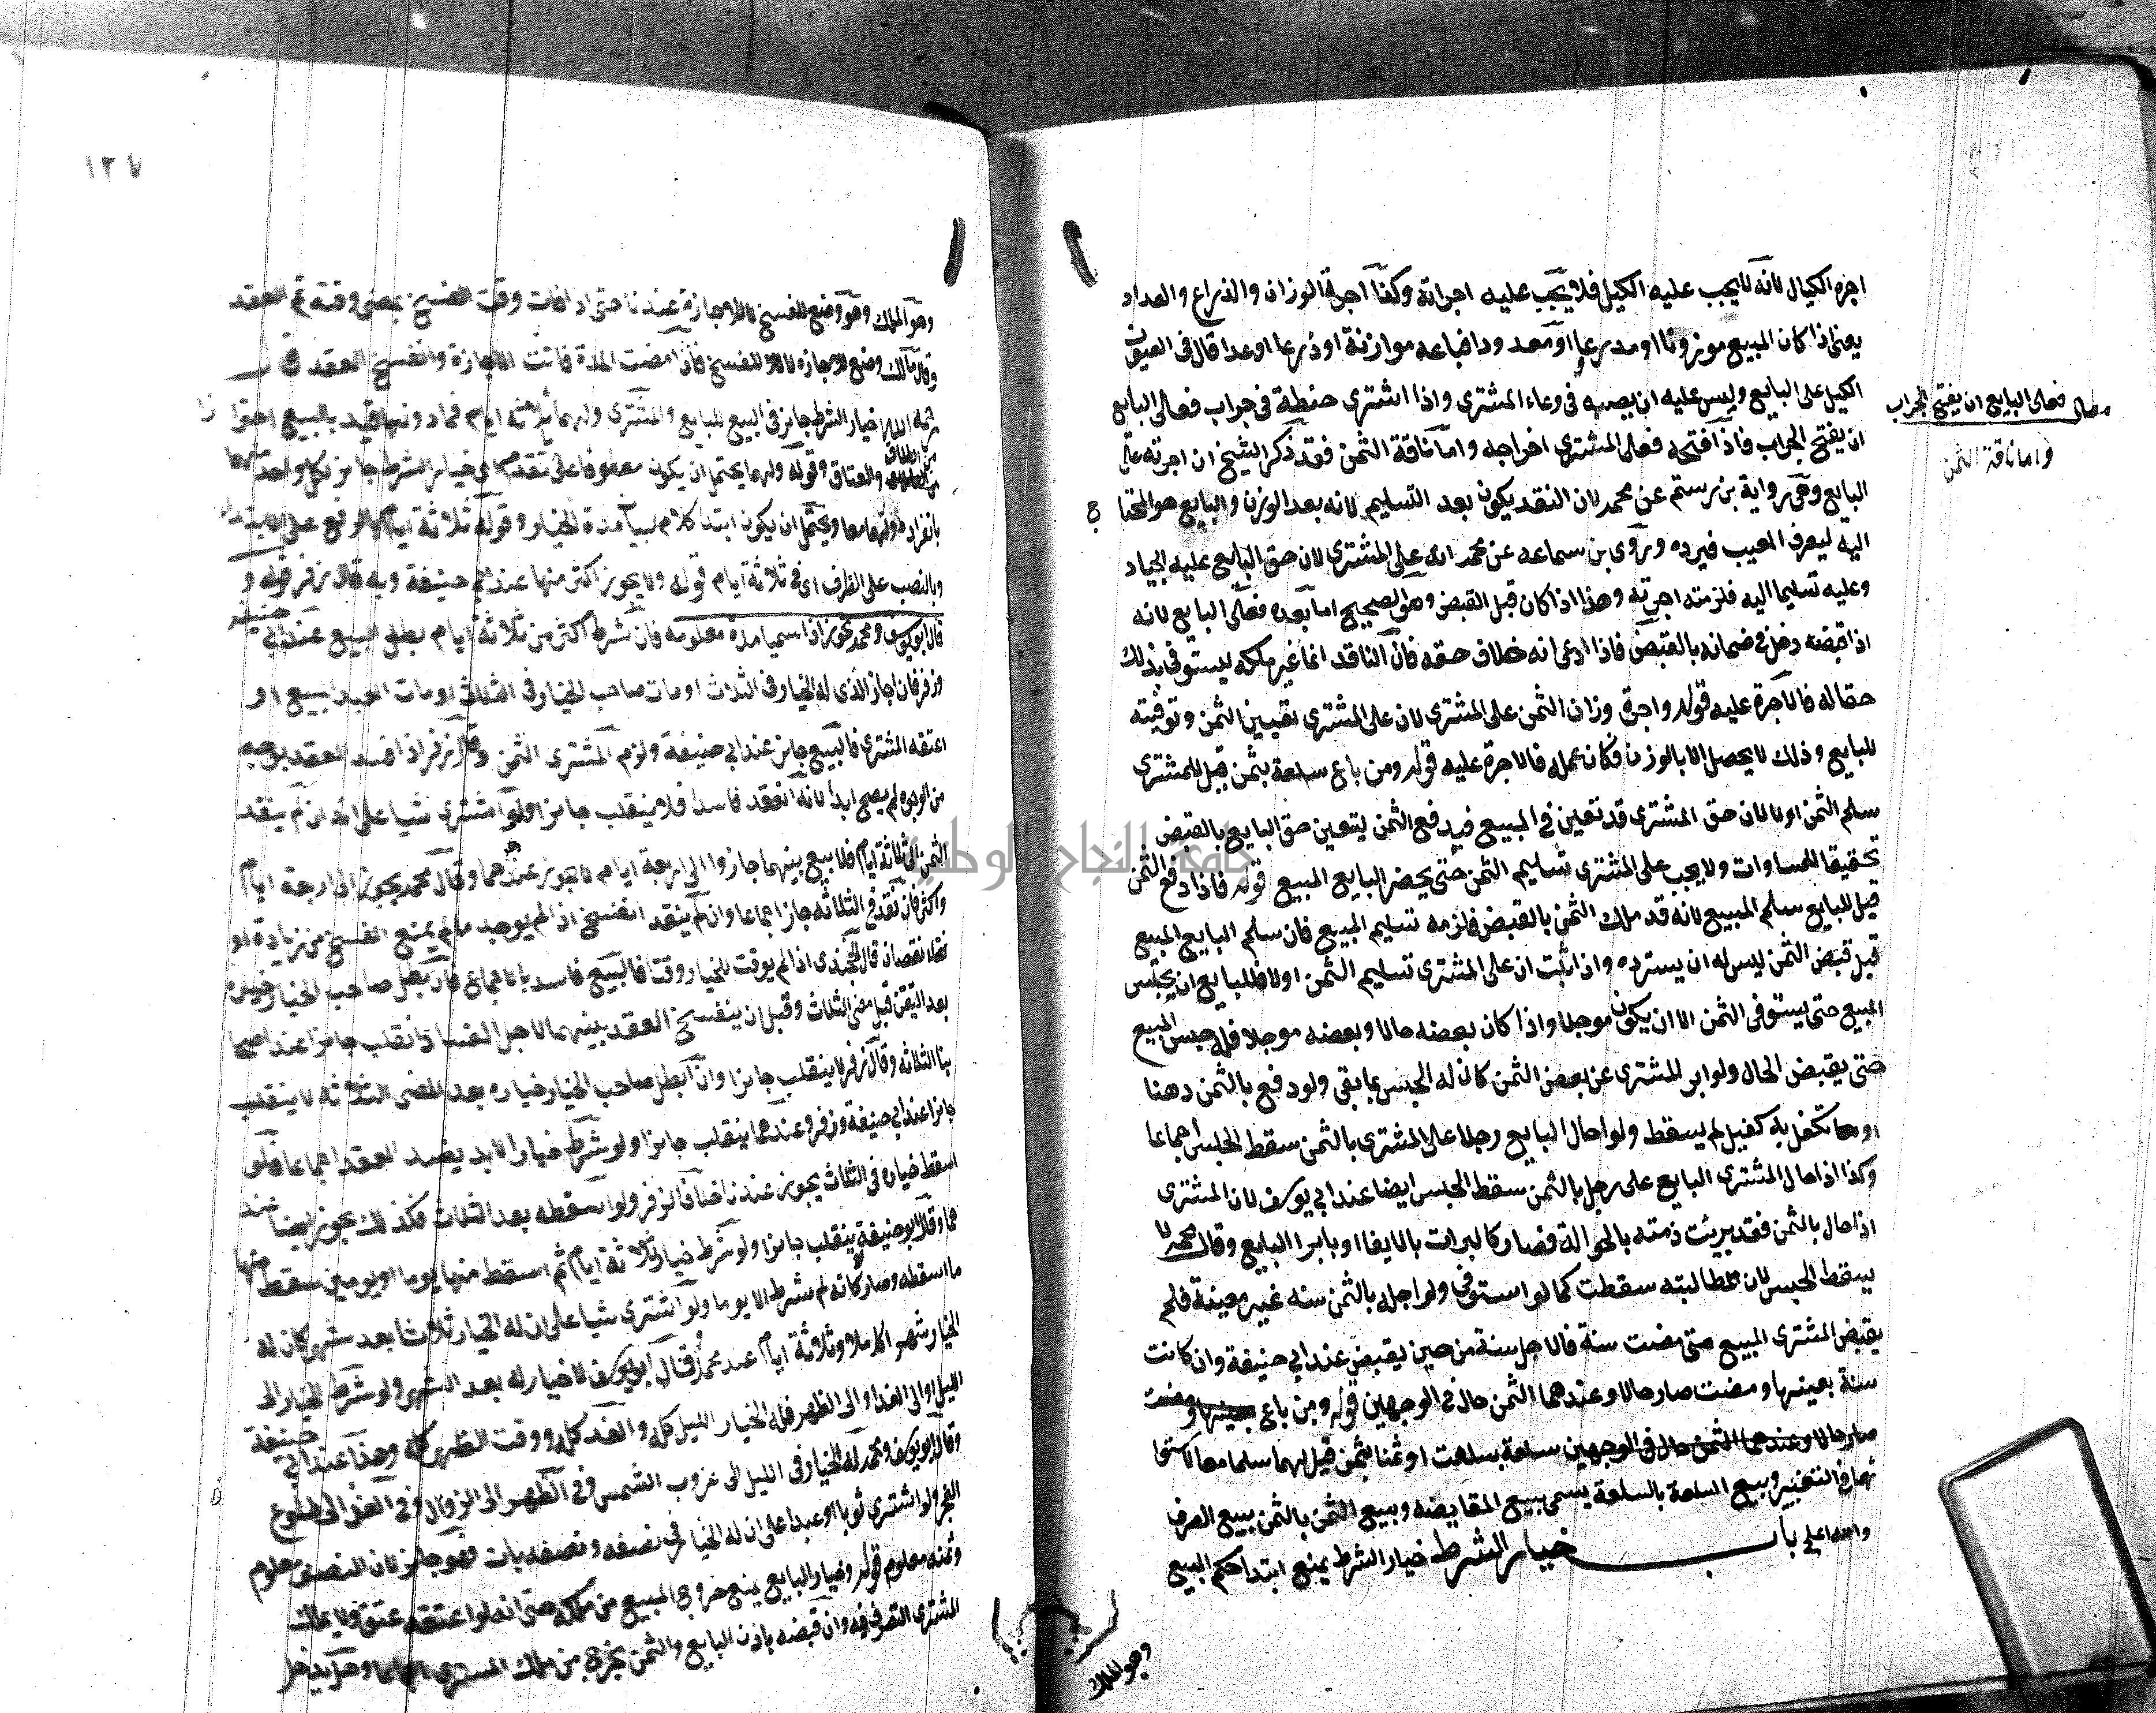 اجرة الكيال لانه لا يجب عليه الكيل فلا يجب عليه اجراته وكذا اجرة الوزان والذراع والعداد
يعنى اذا كان المبيع موزونا او مدروعا او معد ودا فباعه موازنة او ذرعا او عدا قال فى العيون
الكيل على البايع وليس عليه ان يصبه فى وعاء المشترى واذا اشترى حنطة فى جراب فعلى البايع
ان يفتح الجراب فاذا فتحه فعلى المشترى اخراجه واما ناقة الثمن فقد ذكر الشيخ ان اجرته على
البايع وهى رواية بن رستم عن محمد لان النقد يكون بعد التسليم لانه بعد الوزن والبايع هو المحتا ج
اليه ليعرف المعيب فيرده وروى بن سماعه عن محمد انه على المشترى لان حق البايع عليه الجياد
وعليه تسليما اليه فلزمته اجرته وهذا اذا كان قبل القبض وهو الصحيح اما بعده فعلى البايع لانه
اذا قبضه دخل فى ضمانه بالقبض فاذا ادعى انه خلاف حقه فان الناقد انما غير ملكه ليستوفى بذلك
حقا له فالاجرة عليه قوله واجرة وزان الثمن على المشترى لان على المشترى تعيين الثمن وتوفيته
للبايع وذلك لا يحصل الا بالوزن فكان عمله فالاجرة عليه قوله ومن باع سلعة بثمن قيل للمشترى
سلم الثمن اولا لان حق المشترى قد تعين فى المبيع فيدفع الثمن ليتعين حق البايع بالقبض
تحقيقا للمساوات ولا يجب على المشترى تسليم الثمن حتى يحضر البايع المبيع قوله فاذا دفع الثمن
قيل للبايع سلم المبيع لانه قد ملك الثمن بالقبض فلزمه تسليم المبيع فان سلم البايع المبيع
قبل قبض الثمن ليس له ان يسترده واذا ثبت ان على المشترى تسليم الثمن اولا فللبايع ان يحبس
المبيع حتى يستوفى الثمن الا ان يكون موجلا واذا كان بعضه حالا وبعضه موجلا فله حبس المبيع
حتى يقبض الحال ولو ابر المشترى عن بعض الثمن كان له الحبس بما بقى ولو دفع بالثمن دهنا
او تكفل به كفيل لم يسقط ولو احال البايع رجلا على المشترى بالثمن سقط الحبس اجماعا
وكذا اذا حال المشترى البايع على رجل بالثمن سقط الحبس ايضا عند ابى يوسف لان المشترى
اذا حال بالثمن فقد بريئت ذمته بالحوالة فصار كالبرات بالايفا او بابرا البايع وقال محمد لا
يسقط الحبس لان مطالبته سقطت كما لو استوفى ولو اجله بالثمن سنه غير معينة فلم
يقبض المشترى المبيع حتى مضت سنة فالاجل سنة من حين يقبض عند ابى حنيفة وان كانت
سنة بعينها ومضت صار حالا وعندهما الثمن حال فى الوجهين قوله ومن باع بعينها ومضت
صار حالا وعندهما الثمن حال فى الوجهين سلعة بسلعت او ثمنا بثمن قيل لهما سلما معا لاستوا
ئهما فى التعيين وبيع السلعة بالسلعة يسمى بيع المقايضه وبيع الثمن بالثمن بيع الصرف
والله اعلم باب خيار الشرط خيار الشرط يمنع ابتدا حكم البيع
وهو الملك
فعلى البايع ان يفتح الجراب
واما ناقة الثمن
١٢٧
وهو الملك وهو وضع للفسخ لا للاجازة عندنا حتى اذا فات وقت الفسخ بمضى وقته تم العقد
وقال مالك وضع للاجازه لا للفسخ فاذا مضت المدة فاتت الاجازة وانفسخ العقد
رحمه الله خيار الشرط جايز فى البيع للبايع والمشترى ولهما ثلاثة ايام فماد ونها قيد بالبيع احترا زا
من الطلاق والعتاق وقوله ولهما يحتمل ان يكون معطوفا على تقدم اى خيار الشرط جايز لكل واحد منهما
بانفراده ولهما معا ويحتمل ان يكون ابتدا كلام لبيان مدة الخيار وقوله ثلاثة ايام بالرفع على الابتدا
وبالنصب على الظرف اى فى ثلاثة ايام قوله ولا يجوز اكثر منها عند ابى حنيفة وبه قال زفر قوله و
قال ابو يوسف ومحمد يجوز اذا سميا مدة معلومه فان شرط اكثر من ثلاثة ايام بطل البيع عند ابى حنيفة
وزفر فان اجاز الذى له الخيار فى الثلاث او مات صاحب الخيار فى الثلاث او مات العبد المبيع او
اعتقه المشترى فالبيع جايز عند ابى حنيفة ولزم المشترى الثمن وقال زفر اذا فسد العقد بوجه
من الوجوه لم يصح ابدا لانه انعقد فاسدا فلا ينقلب جايزا ولو اشترى شيا على انه ان لم ينقد
الثمن الى ثلاثة ايام فلا بيع بينهما جاز والى اربعة ايام لا يجوز عندهما وقال محمد يجوز الى اربعة ايام
واكثر فان نقد فى الثلاثه جاز اجماعا وان لم ينقد انفسخ اذ الم يوجد ما يمنع الفسخ من زيادة او
نقصان قال الخجندى اذ الم يوقت للخيار وقتا فالبيع فاسد بالاجماع فان ابطل صاحب الخيار خياره
قبل مضى الثلاث وقبل ان ينفسخ العقد بينهما لاجل الفساد انقلب جايزا عند اصحا
بنا الثلاثه وقال زفر لا ينقلب جايزا وان ابطل صاحب الخيار خياره بعد المضى الثلاثة لا ينقلب
جايزا عند ابى حنيفة وزفر وعندهما ينقلب جايزا ولو شرط خيارا لابد يفسد العقد اجماعا فلو
اسقط خياره فى الثلاث يجوز عندنا خلافا لزفر ولو اسقطه بعد الثلاث فكذلك يجوز ايضا عند
هما وقال ابو حنيفة لا ينقلب جايزا ولو شرط خيار ثلاثة ايام ثم اسقط منها يوما او يومين سقط منها
ما اسقطه وصار كانه لم شرط الا يوما ولو اشترى شيا على ان له الخيار ثلاثا بعد شهر كان له
الخيار شهرا كاملا وثلاثة ايام عند محمد وقال ابو يوسف لا خيار له بعد الشهر ولو شرط الخيار الى
الليل او الى الغدا والى الظهر فله الخيار الليل كله والغد كله ووقت الظهر كله وهذا عند ابى حنيفة
وقال ابو يوسف ومحمد له الخيار فى الليل الى غروب الشمس وفى الظهر الى الزوال وفى الغد الى طلوع
الفجر ولو اشترى ثوبا او عبدا على ان له الخيار فى نصفه ونصفه بات فهو جايز لان النصف معلوم
وثمنه معلوم قوله وخيار البايع يمنع خروج المبيع من ملكه حتى انه لو اعتقه عتق ولا يملك
المشترى التصرف فيه وان قبضه باذن البايع والثمن يخرج من ملك المشترى اجماعا وهل يدخل
جامعة النجاح الوطنية